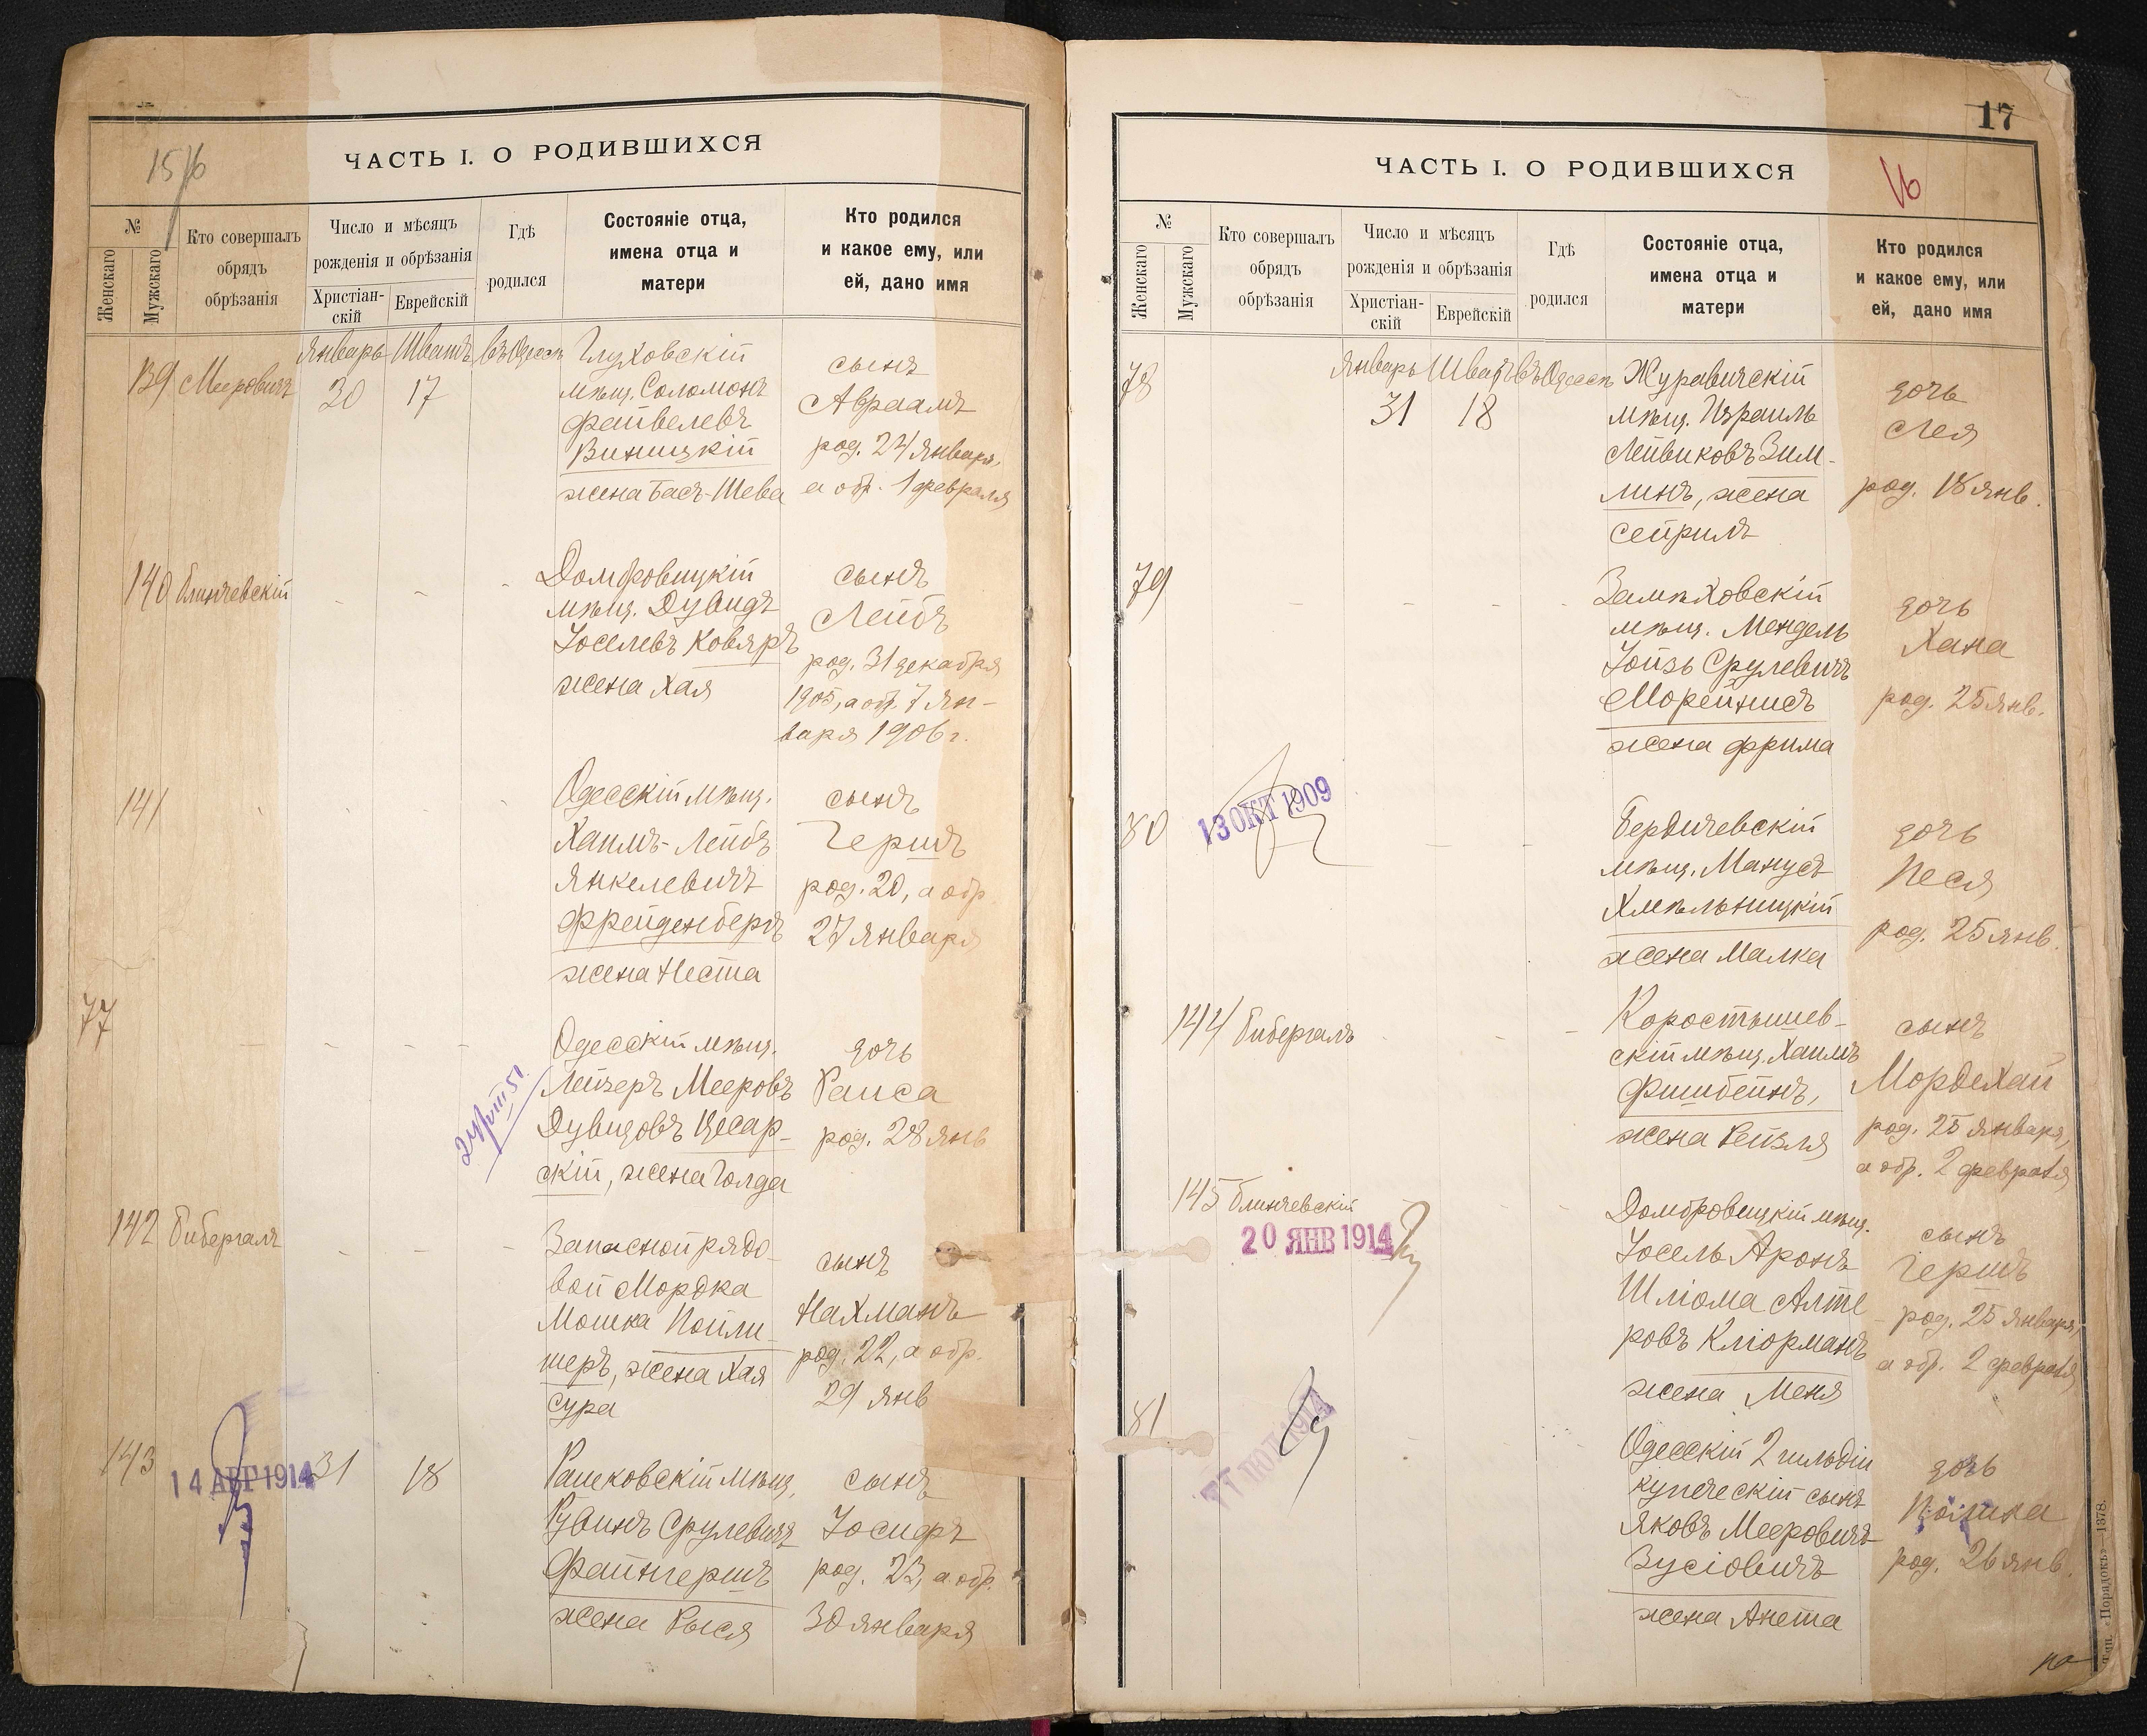 15/16
ЧАСТЬ I. О РОДИВШИХСЯ
№
Женскаго
Мужскаго
Кто совершалъ
обрядъ
обрѣзанія
Число и мѣсяцъ
рожденія и обрѣзанія
Христіан-
скій
Еврейскій
Гдѣ
родился
Состояніе отца,
имена отца и
матери
Кто родился
и какое ему, или
ей, дано имя
139 Мееровичъ
Январь Шватъ въ Одессѣ
30 17
Глуховскій
мѣщ. Соломонъ
Файвелевъ
Виницкій
жена Бась-Шева
сынъ
Авраамъ
род. 24 Января,
а обр. 1 февраля
140 Блинчевскій
Домбровицкій
мѣщ. Дувидъ
Іоселевъ Коваръ
жена Хая
сынъ
Лейбъ
род. 31 декабря
1905, а обр. 7 Ян-
варя 1906 г.
141
Одесскій мѣщ.
Хаимъ-Лейбъ
Янкелевичъ
Фрейденбергъ
жена Неста
сынъ
Гершъ
род. 20, а обр.
27 января
77
Одесскій мѣщ.
Лейзеръ Мееровъ
Дувидовъ Цесар-
скій, жена Голда
дочь
Раиса
род. 28 янв
142 Бибергалъ
Запасной рядо-
вой Мордка
Мошка Пойли-
шеръ, жена Хая
Сура
сынъ
Нахманъ
род. 22, а обр.
29 янв
143
14 АВГ 1914
31 18
Рашковскій мѣщ.
Рувинъ Срулевичъ
Файнгершъ
жена Рыся
сынъ
Іосифъ
род. 23, а обр.
30 января
17
16
ЧАСТЬ I. О РОДИВШИХСЯ
№
Женскаго
Мужскаго
Кто совершалъ
обрядъ
обрѣзанія
Число и мѣсяцъ
рожденія и обрѣзанія
Христіан-
скій
Еврейскій
Гдѣ
родился
Состояніе отца,
имена отца и
матери
Кто родился
и какое ему, или
ей, дано имя
78
Январь Шватъ въ Одессѣ
31 18
Журавичскій
мѣщ. Израиль
Лейвиковъ Зим-
линъ, жена
Сейрилъ
дочь
Лея
род. 18 янв.
79
Замѣховскій
мѣщ. Мендель
Іойзь Срулевичъ
Морейнисъ
жена Фрима
дочь
Хана
род. 25 янв.
80
13 ОКТ 1909
Бердичевскій
мѣщ. Манусъ
Хмѣльницкій
жена Малка
дочь
Песя
род. 25 янв.
144 Бибергалъ
Коростышев-
скій мѣщ. Хаимъ
Фишбейнъ,
жена Рейзля
сынъ
Мордехай
род. 25 января,
а обр. 2 февраля
145 Блинчевскій
20 ЯНВ 1914
Домбровицкій мѣщ.
Іосель Аронъ
Шліома Алте-
ровъ Кліорманъ
жена Меня
сынъ
Гершъ
род. 25 января,
а обр. 2 февраля
81
Одесскій 2 гильдіи
купеческій сынъ
Яковъ Мееровичъ
Зусіовичъ
жена Анета
дочь
род. 26 янв.
Тип. «Порядокъ»—1878.